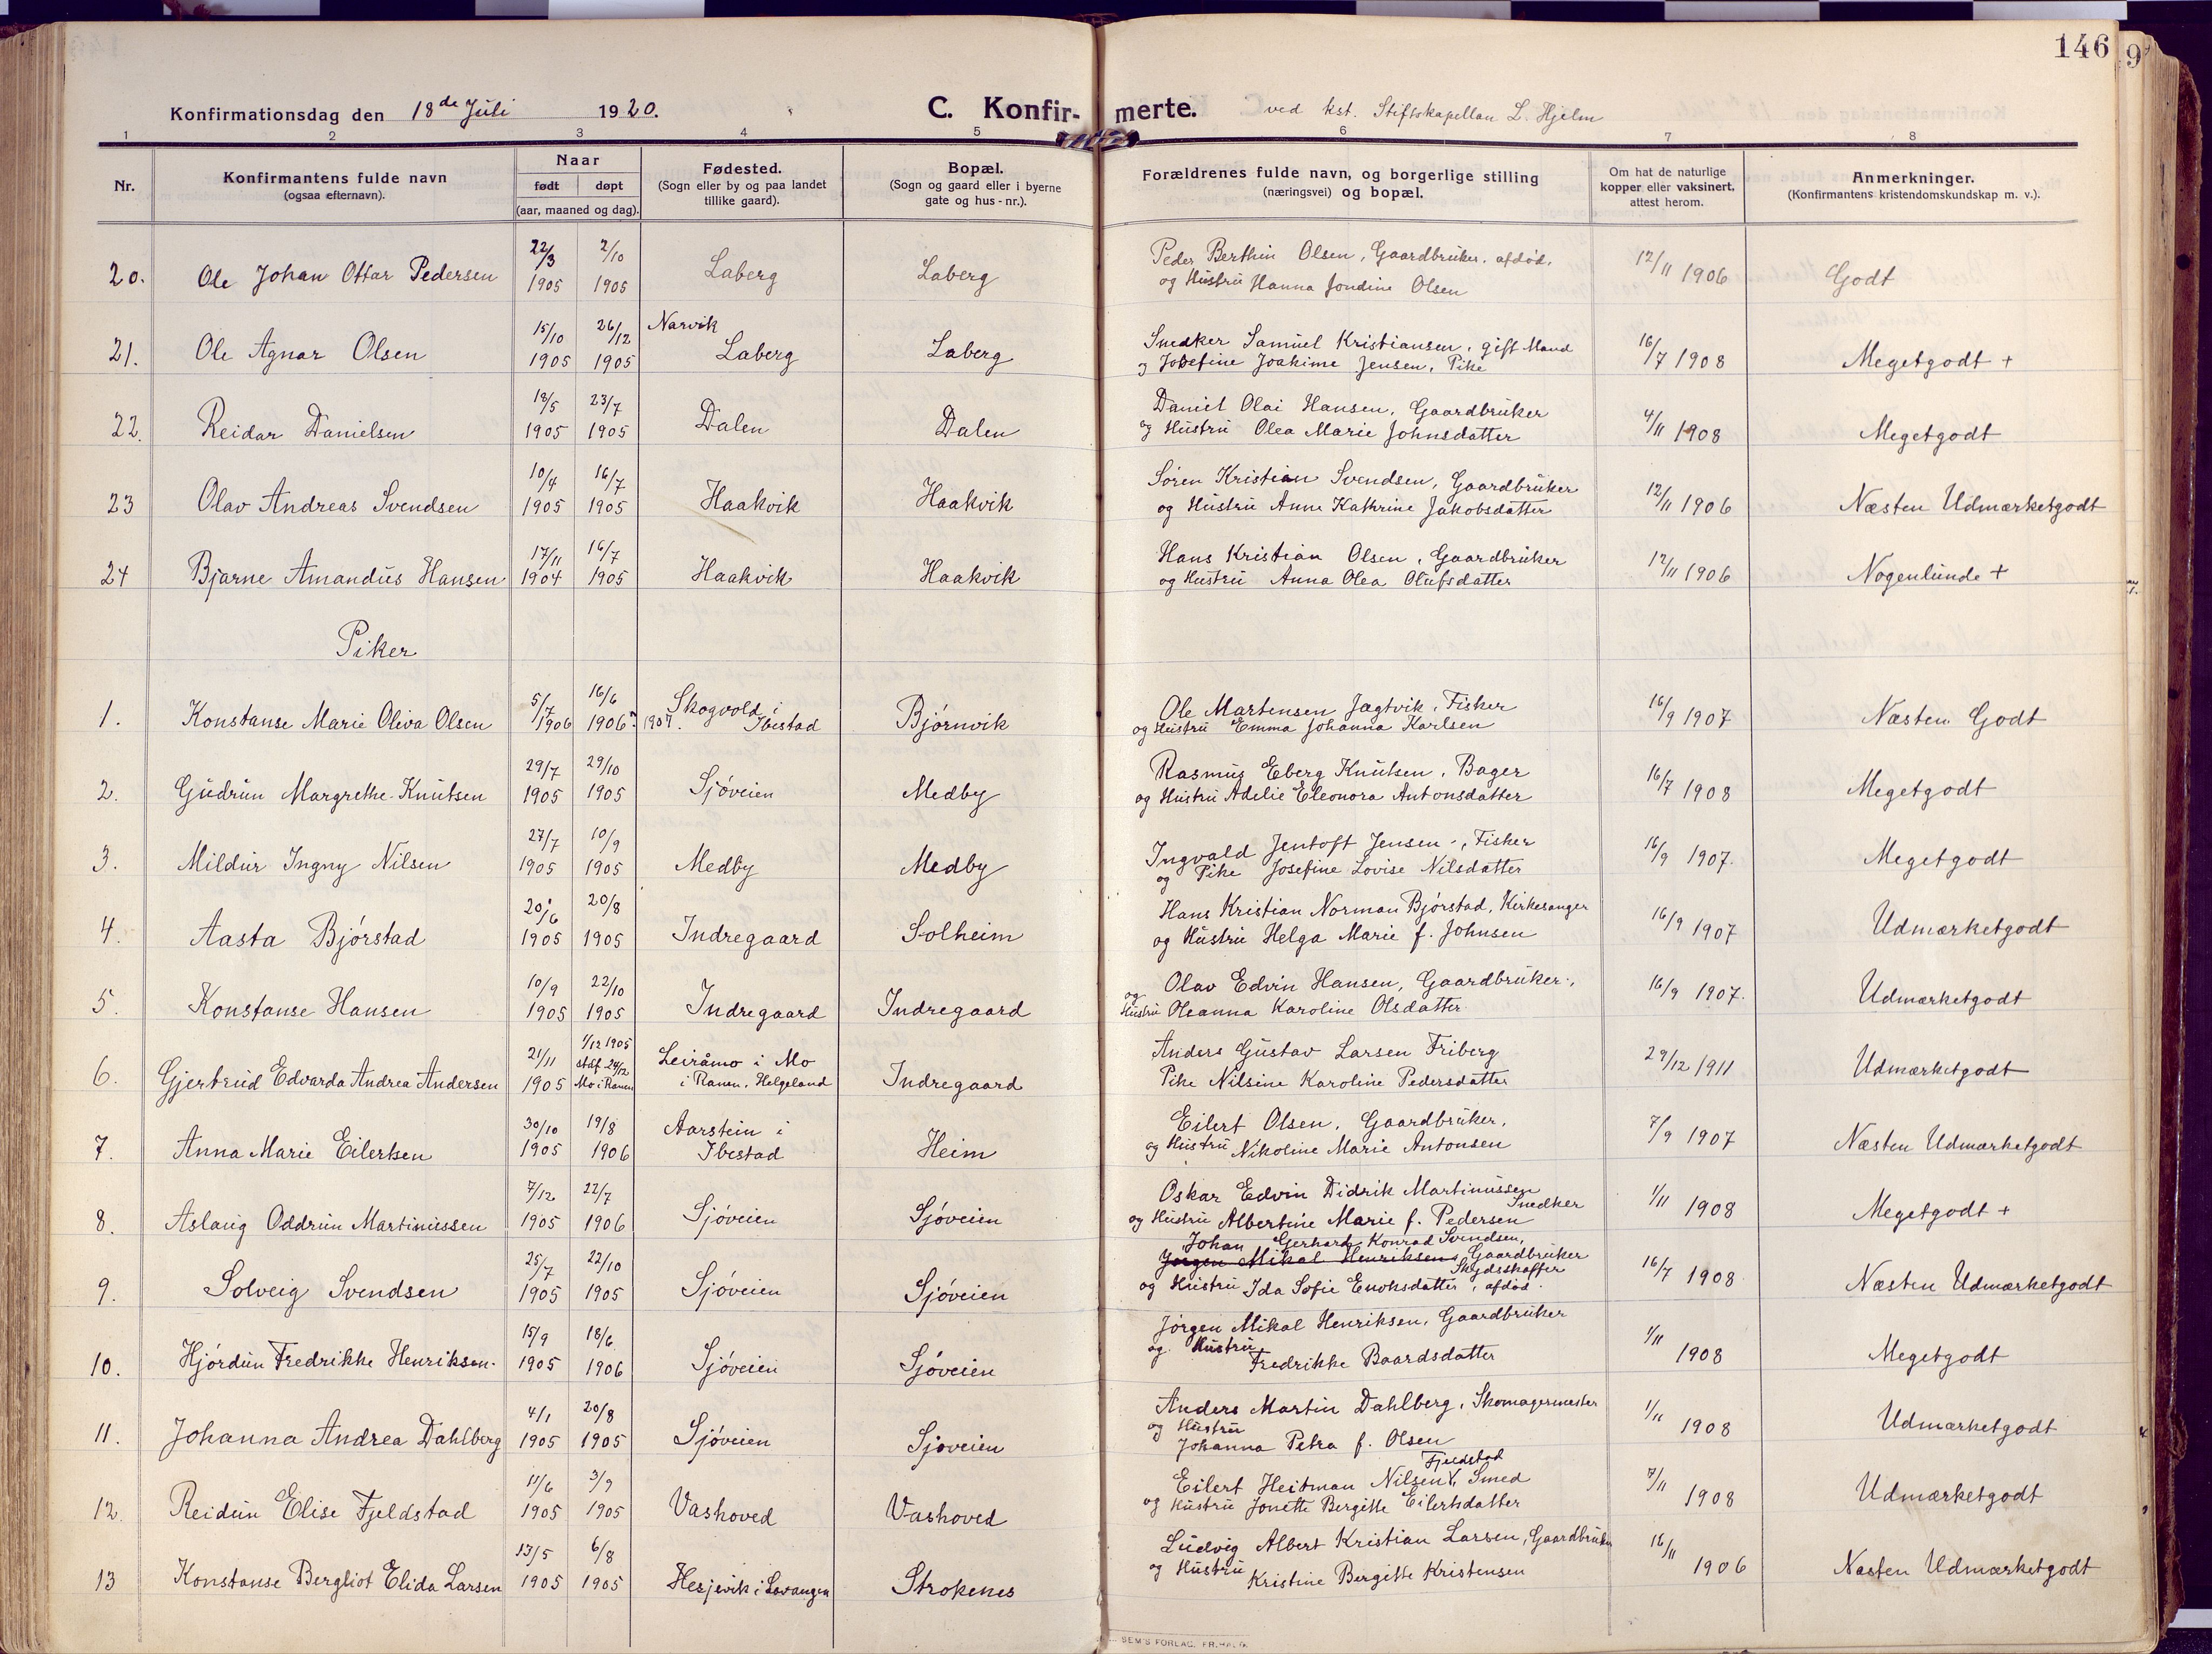 146
9
Konfirmationsdag den 18de Juli 1920. C. Konfir- merte. ved kst. Stiftskapellan L. Hjelm
1 2 3 4 5 6 7 8
Nr.
Konfirmantens fulde navn
(ogsaa efternavn).
Naar
født døpt
(aar, maaned og dag).
Fødested.
(Sogn eller by og paa landet
tillike gaard).
Bopæl.
(Sogn og gaard eller i byerne
gate og hus-nr.).
Forældrenes fulde navn, og borgerlige stilling
(næringsvei) og bopæl.
Om hat de naturlige
kopper eller vaksinert,
attest herom.
Anmerkninger.
(Konfirmantens kristendomskundskap m. v.).
22/3 2/10 Peder Berthin Olsen, Gaardbruker, afdød,
20. Ole Johan Ottar Pedersen 1905 1905 Laberg Laberg og Hustru Hanna Jondine Olsen 12/11 1906 Godt
15/10 26/12 Narvik Snedker Samuel Kristiansen, gift Mand
21. Ole Agnar Olsen 1905 1905 Laberg Laberg og Josefine Joakime Jensen, Pike 16/7 1908 Megetgodt +
18/5 23/7 Daniel Olai Hansen, Gaardbruker
22. Reidar Danielsen 1905 1905 Dalen Dalen og Hustru Olea Marie Johnsdatter 4/11 1908 Megetgodt
10/4 16/7 Søren Kristian Svendsen, Gaardbruker
23 Olav Andreas Svendsen 1905 1905 Haakvik Haakvik og Hustru Anne Kathrine Jakobsdatter 12/11 1906 Næsten Udmærketgodt
17/11 16/7 Hans Kristian Olsen, Gaardbruker
24 Bjarne Amandus Hansen 1904 1905 Haakvik Haakvik og Hustru Anna Olea Olufsdatter 12/11 1906 Nogenlunde +
Piker
5/7 16/6 Skogvold i Ole Martensen Jægtvik, Fisker
1. Konstanse Marie Oliva Olsen 1906 1906? 1907. Ibestad Bjørnvik og Hustru Emma Johanna Karlsen 16/9 1907 Næsten Godt
29/7 29/10 Rasmus Eberg Knutsen, Bager
2. Gudrun Margrethe Knutsen 1905 1905 Sjøveien Medby og Hustru Adelie Eleonora Antonsdatter 16/7 1908 Megetgodt
27/7 10/9 Ingvald Jentoft Jensen, Fisker
3. Mildur Ingny Nilsen 1905 1905 Medby Medby og Pike Josefine Lovise Nilsdatter 16/9 1907. Megetgodt
20/6 20/8 Hans Kristian Norman Bjørstad, Kirkesanger
4. Aasta Bjørstad 1905 1905 Indregaard Solheim og Hustru Helga Marie f. Johnsen 16/9 1907 Udmærketgodt
10/9 22/10 Olav Edvin Hansen, Gaardbruker,
5. Konstanse Hansen 1905 1905 Indregaard Indregaard og Hustru Oleanna Karoline Olsdatter 16/9 1907. Udmærketgodt
1/12 1905
21/11 stdf. 24/12 Leiråmo i Mo Anders Gustav Larsen Friberg
6. Gjertrud Edvarda Andrea Andersen 1905 Mo i Ranen i Ranen, Helgeland Indregaard Pike Nilsine Karoline Pedersdatter 29/12 1911 Udmærketgodt
30/10 19/8 Aarstein i Eilert Olsen, Gaardbruker,
7. Anna Marie Eilertsen 1905 1906 Ibestad Heim og Hustru Nikoline Marie Antonsen 7/9 1907 Næsten Udmærketgodt
7/12 22/7 Oskar Edvin Didrik Martinussen
Snedker
8. Aslaug Oddrun Martinussen 1905 1906 Sjøveien Sjøveien og Hustru Albertine Marie f. Pedersen 1/11 1908 Megetgodt +
Johan Gerhard Konrad Svendsen,
25/7 22/10 Jørgen Mikal Henriksen, Gaardbruker
Skydsskaffer
9. Solveig Svendsen 1905 1905 Sjøveien Sjøveien og Hustru Ida Sofie Enoksdatter, afdød. 16/7 1908 Næsten Udmærketgodt
15/9 18/6 Jørgen Mikal Henriksen, Gaardbruker
10. Hjørdun Fredrikke Henriksen. 1905 1906 Sjøveien Sjøveien og Hustru Fredrikke Baardsdatter 1/11 1908 Megetgodt
4/1 20/8 Anders Martin Dahlberg, Skomagermester
og Hustru
11. Johanna Andrea Dahlberg 1905 1905 Sjøveien Sjøveien Johanna Petra f. Olsen 1/11 1908 Udmærketgodt
Fjeldstad
11/6 3/9 Eilert Heitman Nilsen, Smed
12. Reidun Elise Fjeldstad 1905 1905 Vashoved Vashoved og Hustru Jonette Bergitte Eilertsdatter 7/11 1908 Udmærketgodt
13/5 6/8 Ludvig Albert Kristian Larsen, Gaardbruker
13 Konstanse Bergliot Elida Larsen 1905 1905 Hesjevik i Lavangen Strokenes og Hustru Kristine Bergitte Kristensen 16/11 1906 Næsten Udmærketgodt
SEM'S FORLAG, FR.HALD.